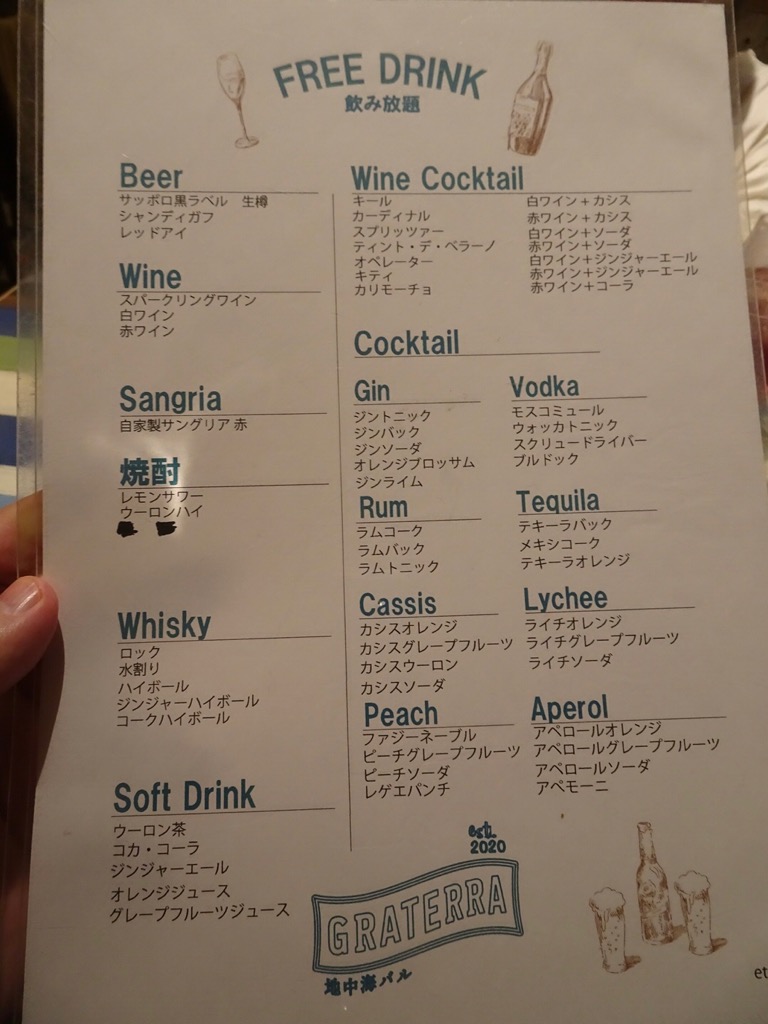 FREE DRINK
飲み放題
Beer
サッポロ黒ラベル 生樽
シャンディガフ
レッドアイ
Wine
スパークリングワイン
白ワイン
赤ワイン
Sangria
自家製サングリア 赤
焼酎
レモンサワー
ウーロンハイ
Whisky
ロック
水割り
ハイボール
ジンジャーハイボール
コークハイボール
Soft Drink
ウーロン茶
コカ・コーラ
ジンジャーエール
オレンジジュース
グレープフルーツジュース
Wine Cocktail
キール 白ワイン+カシス
カーディナル 赤ワイン+カシス
スプリッツァー 白ワイン+ソーダ
ティント・デ・ベラーノ 赤ワイン+ソーダ
オペレーター 白ワイン+ジンジャーエール
キティ 赤ワイン+ジンジャーエール
カリモーチョ 赤ワイン+コーラ
Cocktail
Gin
ジントニック
ジンバック
ジンソーダ
オレンジブロッサム
ジンライム
Vodka
モスコミュール
ウォッカトニック
スクリュードライバー
ブルドック
Rum
ラムコーク
ラムバック
ラムトニック
Tequila
テキーラバック
メキシコーク
テキーラオレンジ
Cassis
カシスオレンジ
カシスグレープフルーツ
カシスウーロン
カシスソーダ
Lychee
ライチオレンジ
ライチグレープフルーツ
ライチソーダ
Peach
ファジーネーブル
ピーチグレープフルーツ
ピーチソーダ
レゲエパンチ
Aperol
アペロールオレンジ
アペロールグレープフルーツ
アペロールソーダ
アペモーニ
est.
2020
GRATERRA
地中海バル
et